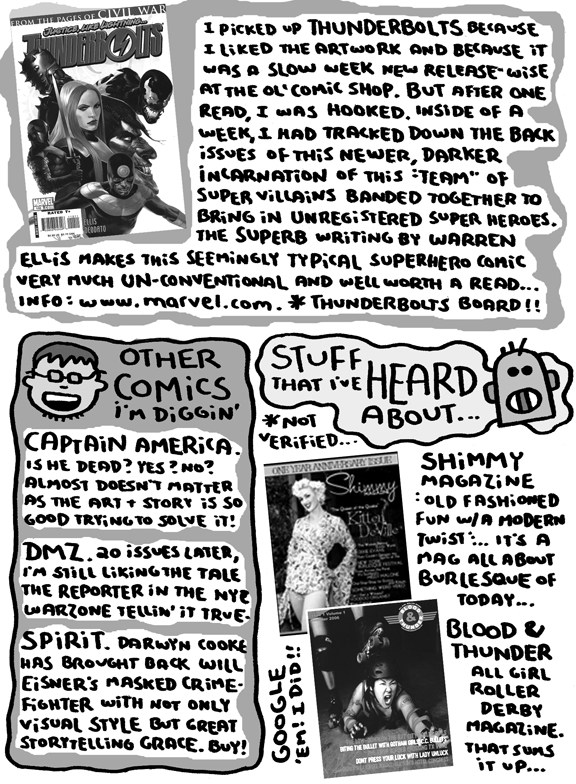 FROM THE PAGES OF CIVIL WAR
JUSTICE, LIKE LIGHTNING...
THUNDERBOLTS
MARVEL
ELLIS
DEODATO
I PICKED UP THUNDERBOLTS BECAUSE
I LIKED THE ARTWORK AND BECAUSE IT
WAS A SLOW WEEK NEW RELEASE-WISE
AT THE OL' COMIC SHOP. BUT AFTER ONE
READ, I WAS HOOKED. INSIDE OF A
WEEK, I HAD TRACKED DOWN THE BACK
ISSUES OF THIS NEWER, DARKER
INCARNATION OF THIS "TEAM" OF
SUPER VILLAINS BANDED TOGETHER TO
BRING IN UNREGISTERED SUPER HEROES.
THE SUPERB WRITING BY WARREN
ELLIS MAKES THIS SEEMINGLY TYPICAL SUPERHERO COMIC
VERY MUCH UN-CONVENTIONAL AND WELL WORTH A READ...
INFO: www.marvel.com. * THUNDERBOLTS BOARD!!
OTHER
COMICS
I'M DIGGIN'
CAPTAIN AMERICA.
IS HE DEAD? YES? NO?
ALMOST DOESN'T MATTER
AS THE ART + STORY IS SO
GOOD TRYING TO SOLVE IT!
DMZ. 20 ISSUES LATER,
I'M STILL LIKING THE TALE
THE REPORTER IN THE NYC
WARZONE TELLIN' IT TRUE.
SPIRIT. DARWYN COOKE
HAS BROUGHT BACK WILL
EISNER'S MASKED CRIME-
FIGHTER WITH NOT ONLY
VISUAL STYLE BUT GREAT
STORYTELLING GRACE. BUY!
STUFF
THAT I'VE HEARD
ABOUT...
*NOT
VERIFIED...
ONE YEAR ANNIVERSARY ISSUE
Shimmy
Kitten
DeVille
SHIMMY
MAGAZINE
: OLD FASHIONED
FUN W/A MODERN
TWIST:... IT'S A
MAG ALL ABOUT
BURLESQUE OF
TODAY...
GOOGLE
'EM! I DID!!
BLOOD & THUNDER
BITING THE BULLET WITH GOTHAM GIRLS
DON'T PRESS YOUR LUCK WITH LADY UNLUCK
BLOOD &
THUNDER
ALL GIRL
ROLLER
DERBY
MAGAZINE.
THAT SUMS
IT UP...